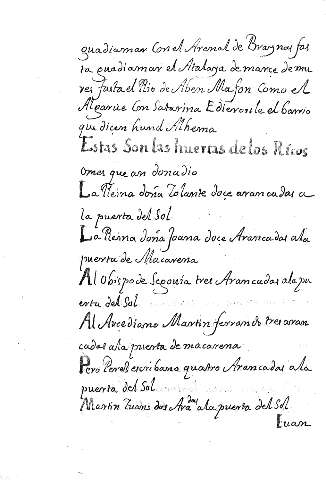 guadiamar Con el Arenal de Braynas fas
ta guadiamar el Atalaya de marçe de mu
res fasta el Rio de Aben Mafon Como el
Algarue Con Catarina E dieronle el barrio
que diçen hund Alhema
Estas Son las huertas de los Ricos
omes que an donadio
La Reina doña Yolante doce arancadas a
la puerta del Sol
La Reina doña Joana doce Arancadas ala
puerta de Macarena
Al obispo de Segouia tres Arancadas ala pu
erta del Sol
Al Arcediano Martin ferrando tres aran
cadas ala puerta de macarena
Pero Perez escribano quatro Arancadas ala
puerta del Sol
Martin Iuans dos Aradas ala puerta del Sol
Iuan